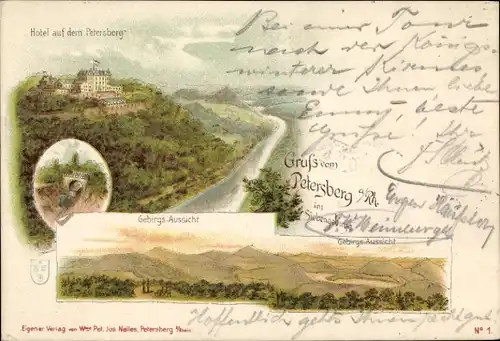 Hotel auf dem Petersberg
Bei einer Tour
nach der Königs-
winterer Kirmes
sende Ihnen liebe
Emmy, beste
Grüße! Ihr
Gruß vom
Petersberg a/Rh.
im
Siebengebirge
Eugen
Gebirgs-Aussicht
Gebirgs-Aussicht
Hoffentlich gehts Ihnen
Eigener Verlag von Wwe Pet. Jos. Nelles, Petersberg a/Rhein
No 1.